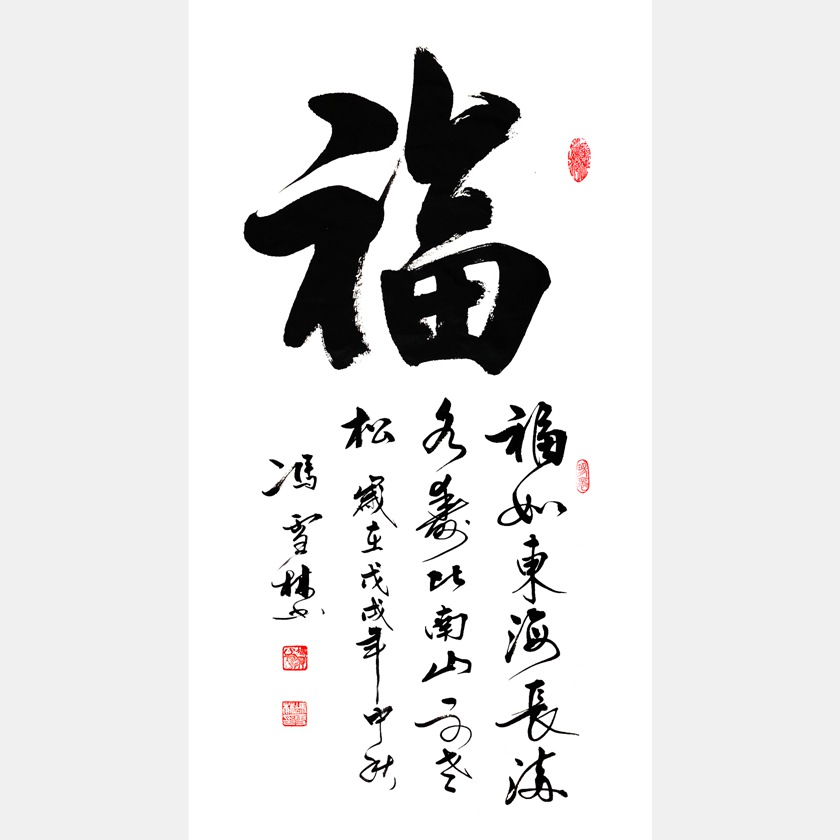 福
福如東海長流
水壽比南山不老
松 歲在戊戌年中秋
馮雪林书